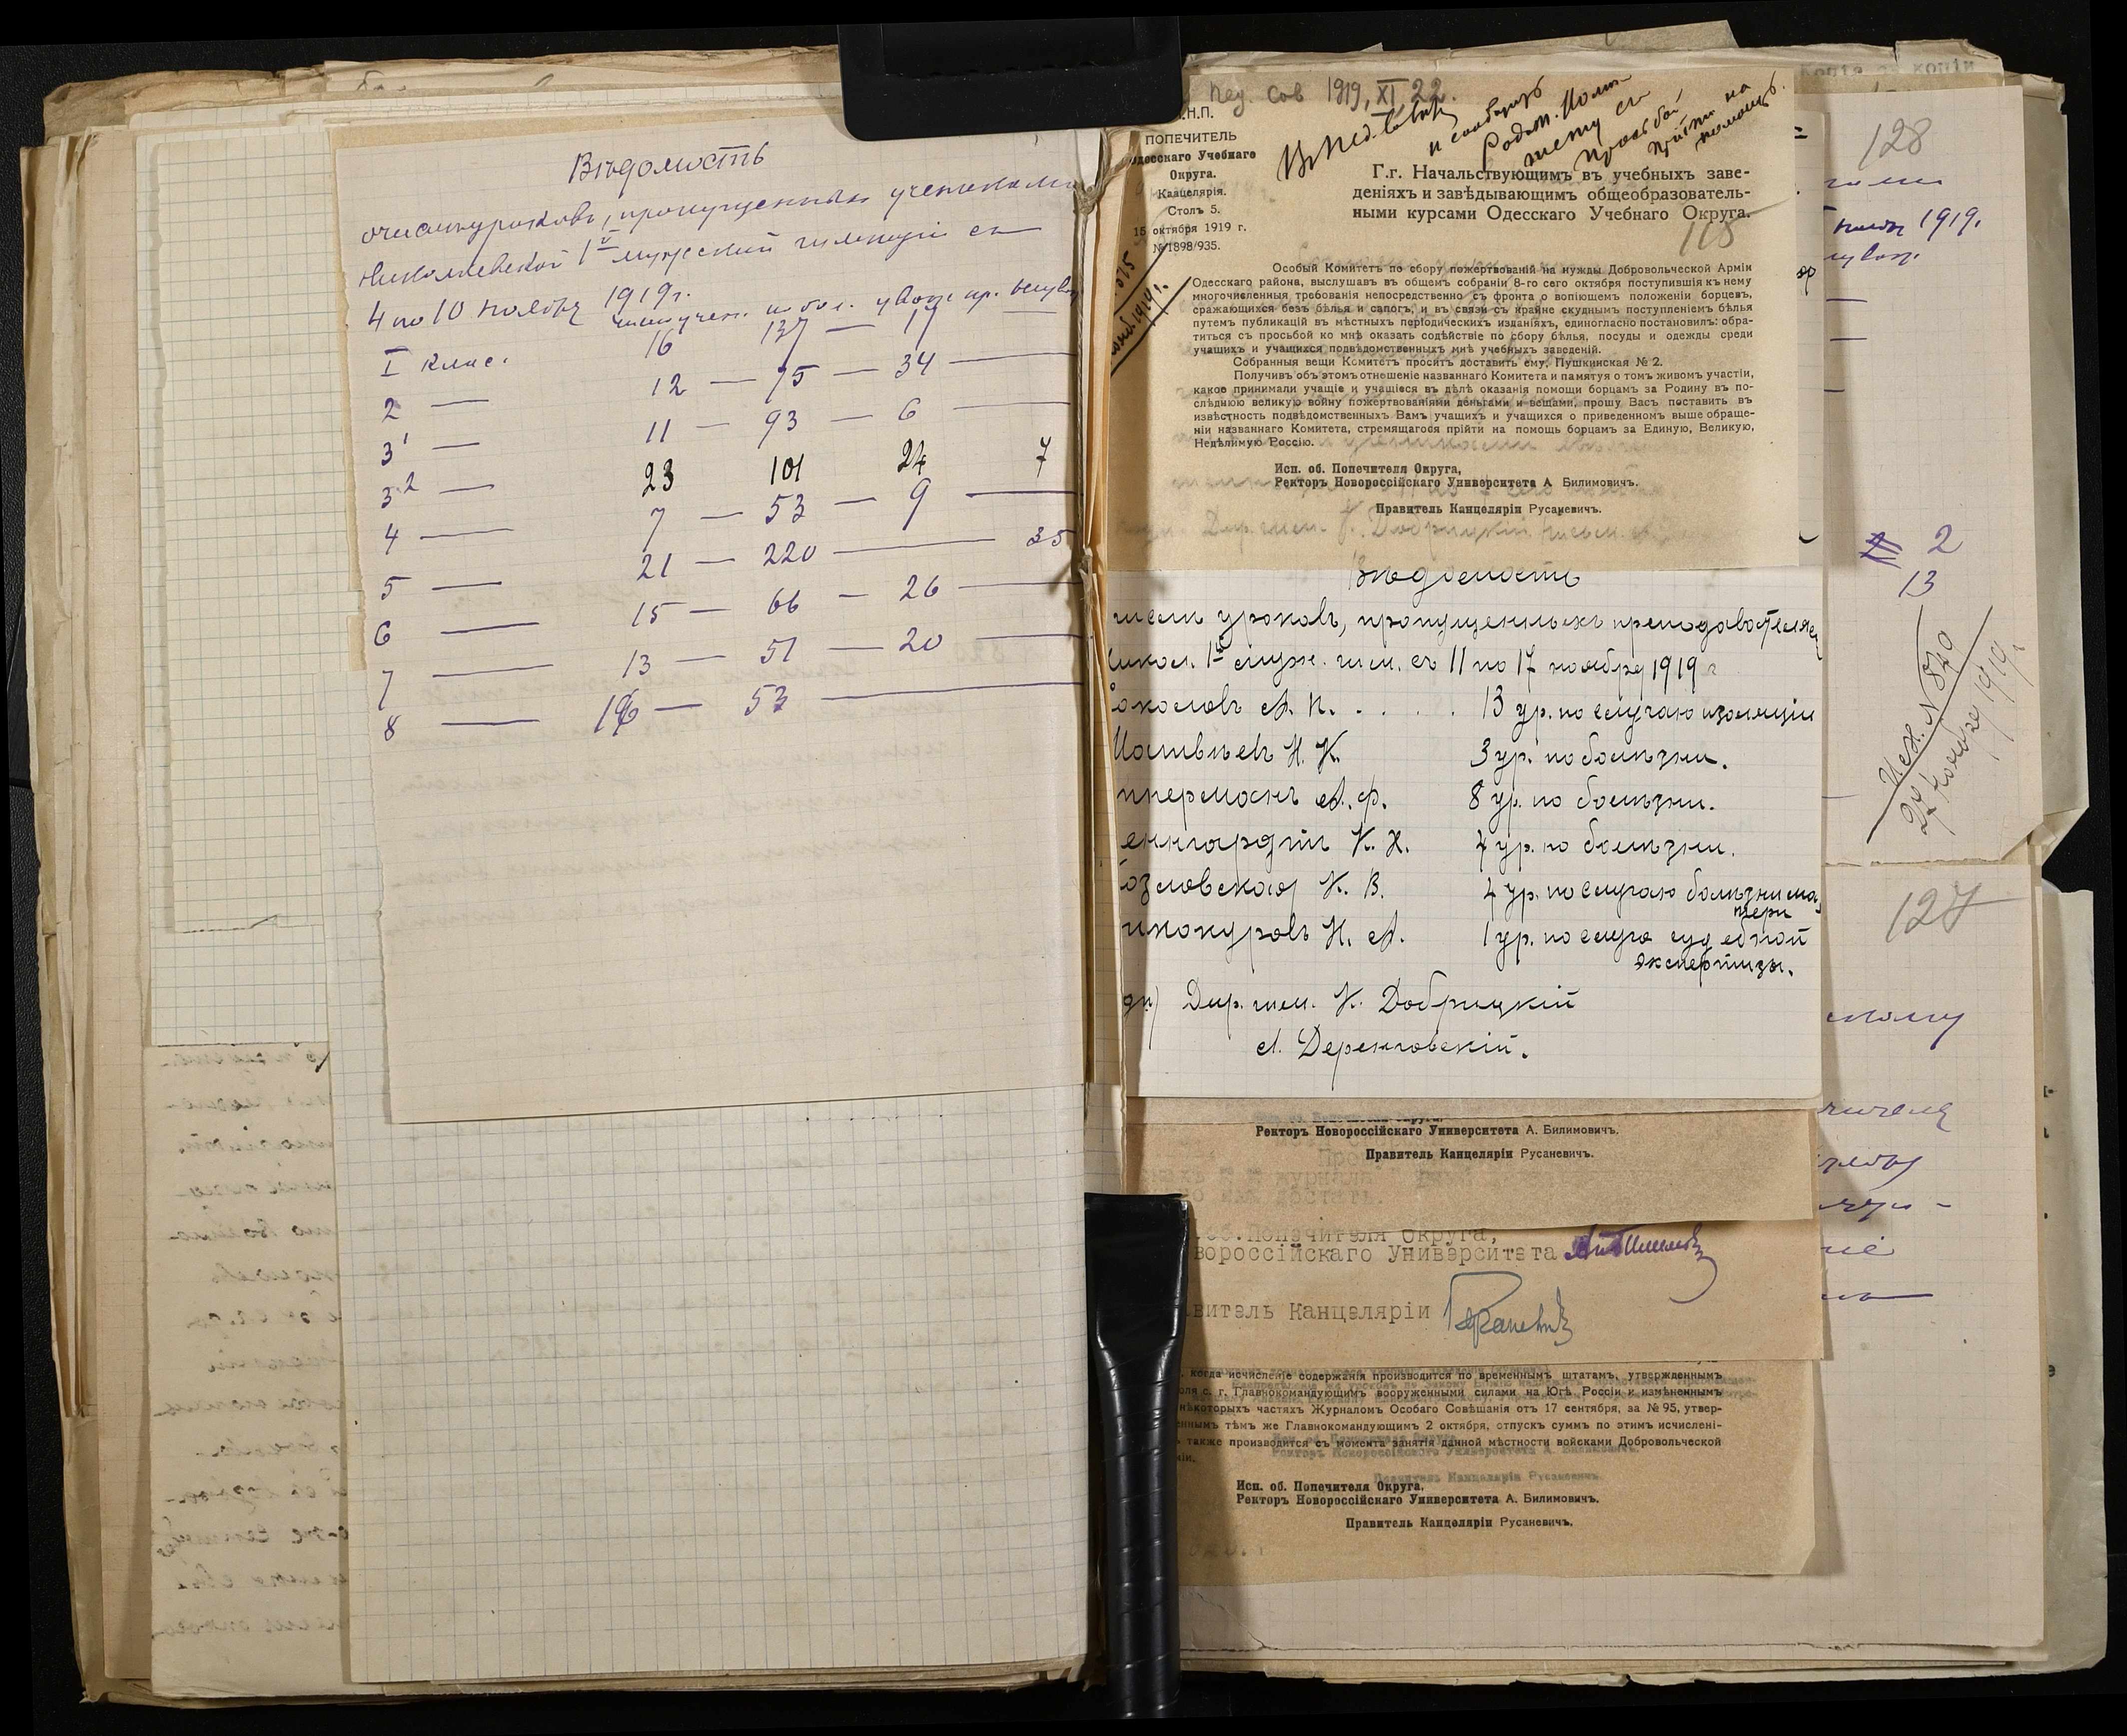 Вѣдомость
о числѣ уроковъ, пропущенныхъ учениками
Николаевской 1й мужской гимназіи съ
4 по 10 ноября 1919 г.
число учен. по бол. уваж. пр. неуваж
I клас. 16 137 — 17 —
2 — 12 — 75 — 34 —
3¹ — 11 — 93 — 6 —
3² — 23 101 24 7
4 — 7 — 53 — 9 —
5 — 21 — 220 — 35
6 — 15 — 66 — 26 —
7 — 13 — 51 — 20 —
8 — 16 — 53 —
Пед. Сов 1919, XI 22.
Въ Пед. Совѣтъ
и сообщить
Родит. Коми-
тету съ
просьбой
прійти на
помощь.
.Н.П.
ПОПЕЧИТЕЛЬ
Одесскаго Учебнаго
Округа.
Канцелярія.
Столъ 5.
15 октября 1919 г.
№ 1898/935.
Г.г. Начальствующимъ въ учебныхъ заве-
деніяхъ и завѣдывающимъ общеобразователь-
ными курсами Одесскаго Учебнаго Округа.
118
Особый Комитетъ по сбору пожертвованій на нужды Добровольческой Арміи
Одесскаго района, выслушавъ въ общемъ собраніи 8-го сего октября поступившія къ нему
многочисленныя требованія непосредственно съ фронта о вопіющемъ положеніи борцевъ,
сражающихся безъ бѣлья и сапогъ, и въ связи съ крайне скуднымъ поступленіемъ бѣлья
путемъ публикацій въ мѣстныхъ періодическихъ изданіяхъ, единогласно постановилъ: обра-
титься съ просьбой ко мнѣ оказать содѣйствіе по сбору бѣлья, посуды и одежды среди
учащихъ и учащихся подвѣдомственныхъ мнѣ учебныхъ заведеній.
Собранныя вещи Комитетъ проситъ доставить ему, Пушкинская № 2.
Получивъ объ этомъ отношеніе названнаго Комитета и памятуя о томъ живомъ участіи,
какое принимали учащіе и учащіеся въ дѣлѣ оказанія помощи борцамъ за Родину въ по-
слѣднюю великую войну пожертвованіями деньгами и вещами, прошу Васъ поставить въ
извѣстность подвѣдомственныхъ Вамъ учащихъ и учащихся о приведенномъ выше обраще-
ніи названнаго Комитета, стремящагося прійти на помощь борцамъ за Единую, Великую,
Недѣлимую Россію.
Исп. об. Попечителя Округа,
Ректоръ Новороссійскаго Университета А Билимовичъ.
Правитель Канцеляріи Русаневичъ.
Вѣдомость
числа уроковъ, пропущенныхъ преподавателям
Никол. 1й муж. гим. съ 11 по 17 ноября 1919 г
околовъ А. П. . . . . 13 ур. по случаю изоляціи
Матвѣевъ Н. К. 3 ур. по болѣзни.
пперманъ А. Ф. 8 ур. по болѣзни.
енгардтъ К. Х. 7 ур. по болѣзни.
озловская К. В. 4 ур. по случаю болѣзни ма-
тери
инокуровъ Н. А. 1 ур. по случ судебной
экспертизы.
дп) Дир. гим. К. Добрицкій
А. Деренговскій.
Ректоръ Новороссійскаго Университета А. Билимовичъ.
Правитель Канцеляріи Русаневичъ.
.об. Попечителя Округа,
вороссійскаго Университета
витель Канцеляріи
когда исчисленіе содержанія производится по временнымъ штатамъ, утвержденнымъ
оля с. г. Главнокомандующимъ вооруженными силами на Югѣ Россіи и измѣненнымъ
нѣкоторыхъ частяхъ Журналомъ Особаго Совѣщанія отъ 17 сентября, за № 95, утвер-
еннымъ тѣмъ же Главнокомандующимъ 2 октября, отпускъ суммъ по этимъ исчислені-
также производится съ момента занятія данной мѣстности войсками Добровольческой
міи.
Исп. об. Попечителя Округа,
Ректоръ Новороссійскаго Университета А. Билимовичъ.
Правитель Канцеляріи Русаневичъ.
128
ноябр 1919.
2
13
Исх. N 840
27 ноября 1919 г.
127